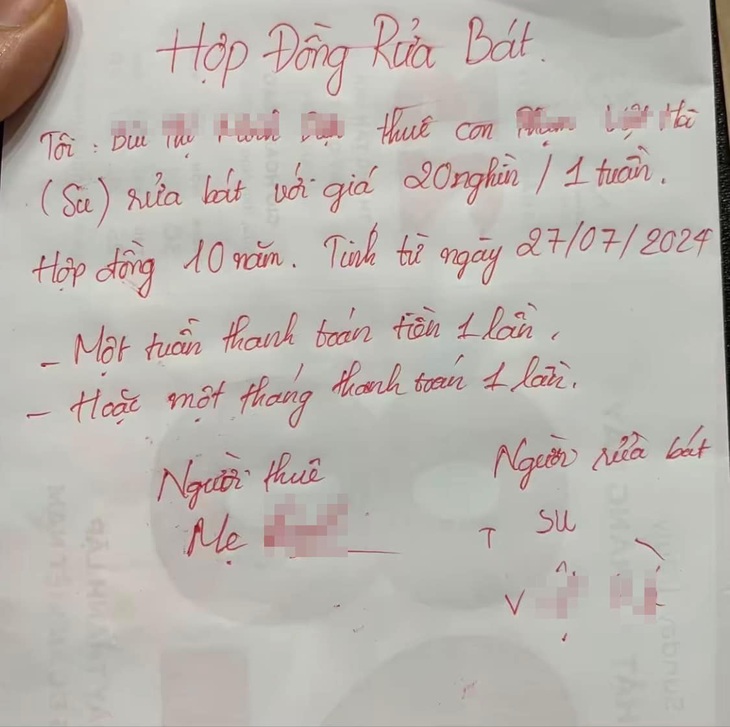 Hợp Đồng Rửa Bát.
Tôi: Bùi Thị thuê con Hà
(Su) rửa bát với giá 20nghìn / 1 tuần.
Hợp đồng 10 năm. Tính từ ngày 27/07/2024
- Một tuần thanh toán tiền 1 lần.
- Hoặc một tháng thanh toán 1 lần.
Người thuê
Mẹ
Người rửa bát
SU